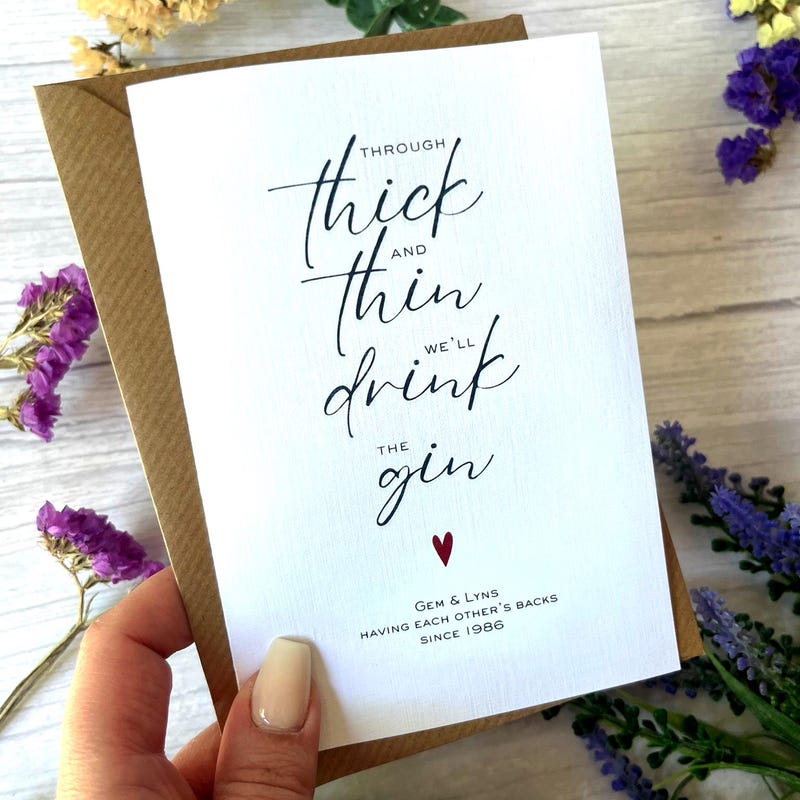 THROUGH
thick
AND
thin
WE'LL
drink
THE
gin
GEM & LYNS
HAVING EACH OTHER'S BACKS
SINCE 1986